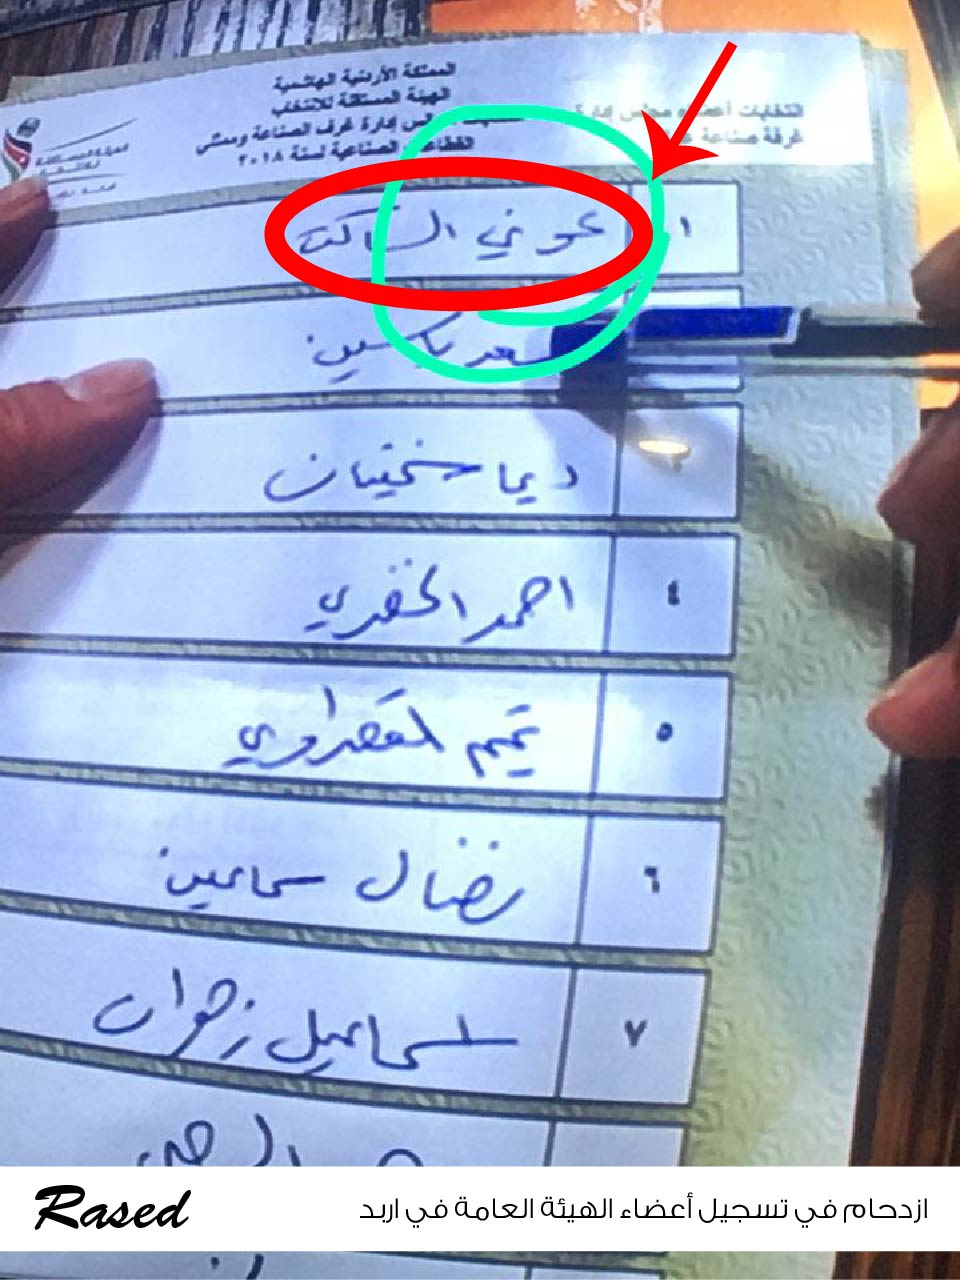 المملكة الأردنية الهاشمية
الهيئة المستقلة للانتخاب
مجلس إدارة غرف الصناعة وممثلي
القطاعات الصناعية لسنة ٢٠١٨
انتخابات أعضاء مجلس إدارة
غرفة صناعة
١ عوني الساكت
سعد ياسين
ديما سختيان
٤ احمد الخضري
٥ تميم القصراوي
٦ نضال سماعين
٧ اسماعيل زهران
Rased
ازدحام في تسجيل أعضاء الهيئة العامة في اربد